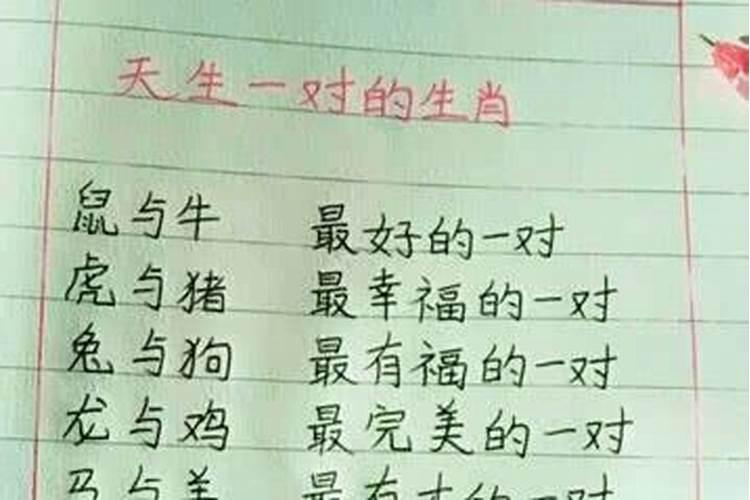 天生一对的生肖
鼠与牛 最好的一对
虎与猪 最幸福的一对
兔与狗 最有福的一对
龙与鸡 最完美的一对
马与羊 最有才的一对